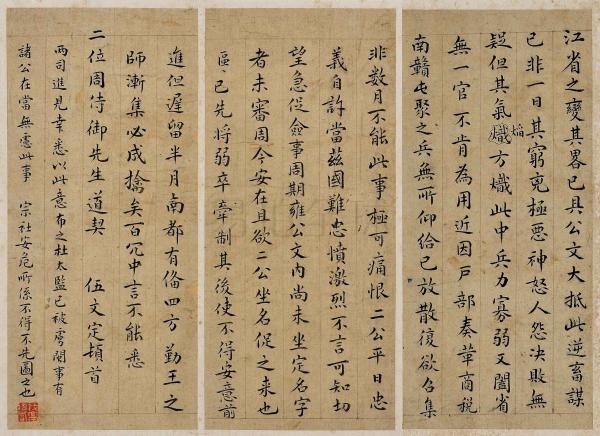 江省之變其畧已具公文大抵此逆畜謀
已非一日其窮兇極惡神怒人怨決敗無
疑但其氣熾方熾此中兵力寡弱又闔省
焰
無一官不肯為用近因戶部奏革商稅
南贛屯聚之兵無所仰給已放散復欲召集
非數月不能此事極可痛恨二公平日忠
義自許當茲國難忠憤激烈不言可知切
望急促僉事周期雍公文內尚未坐定名字
者未審周今安在且欲二公坐名促之来也
區〻已先將弱卒牽制其後使不得安意前
進但遲留半月南都有備四方勤王之
師漸集必成擒矣百冗中言不能悉
二位周侍御先生道契 伍文定頓首
兩司進見幸悉以此意布之杜太監已被虜閣事有
諸公在當無慮此事 宗社安危所係不得不先圖之也